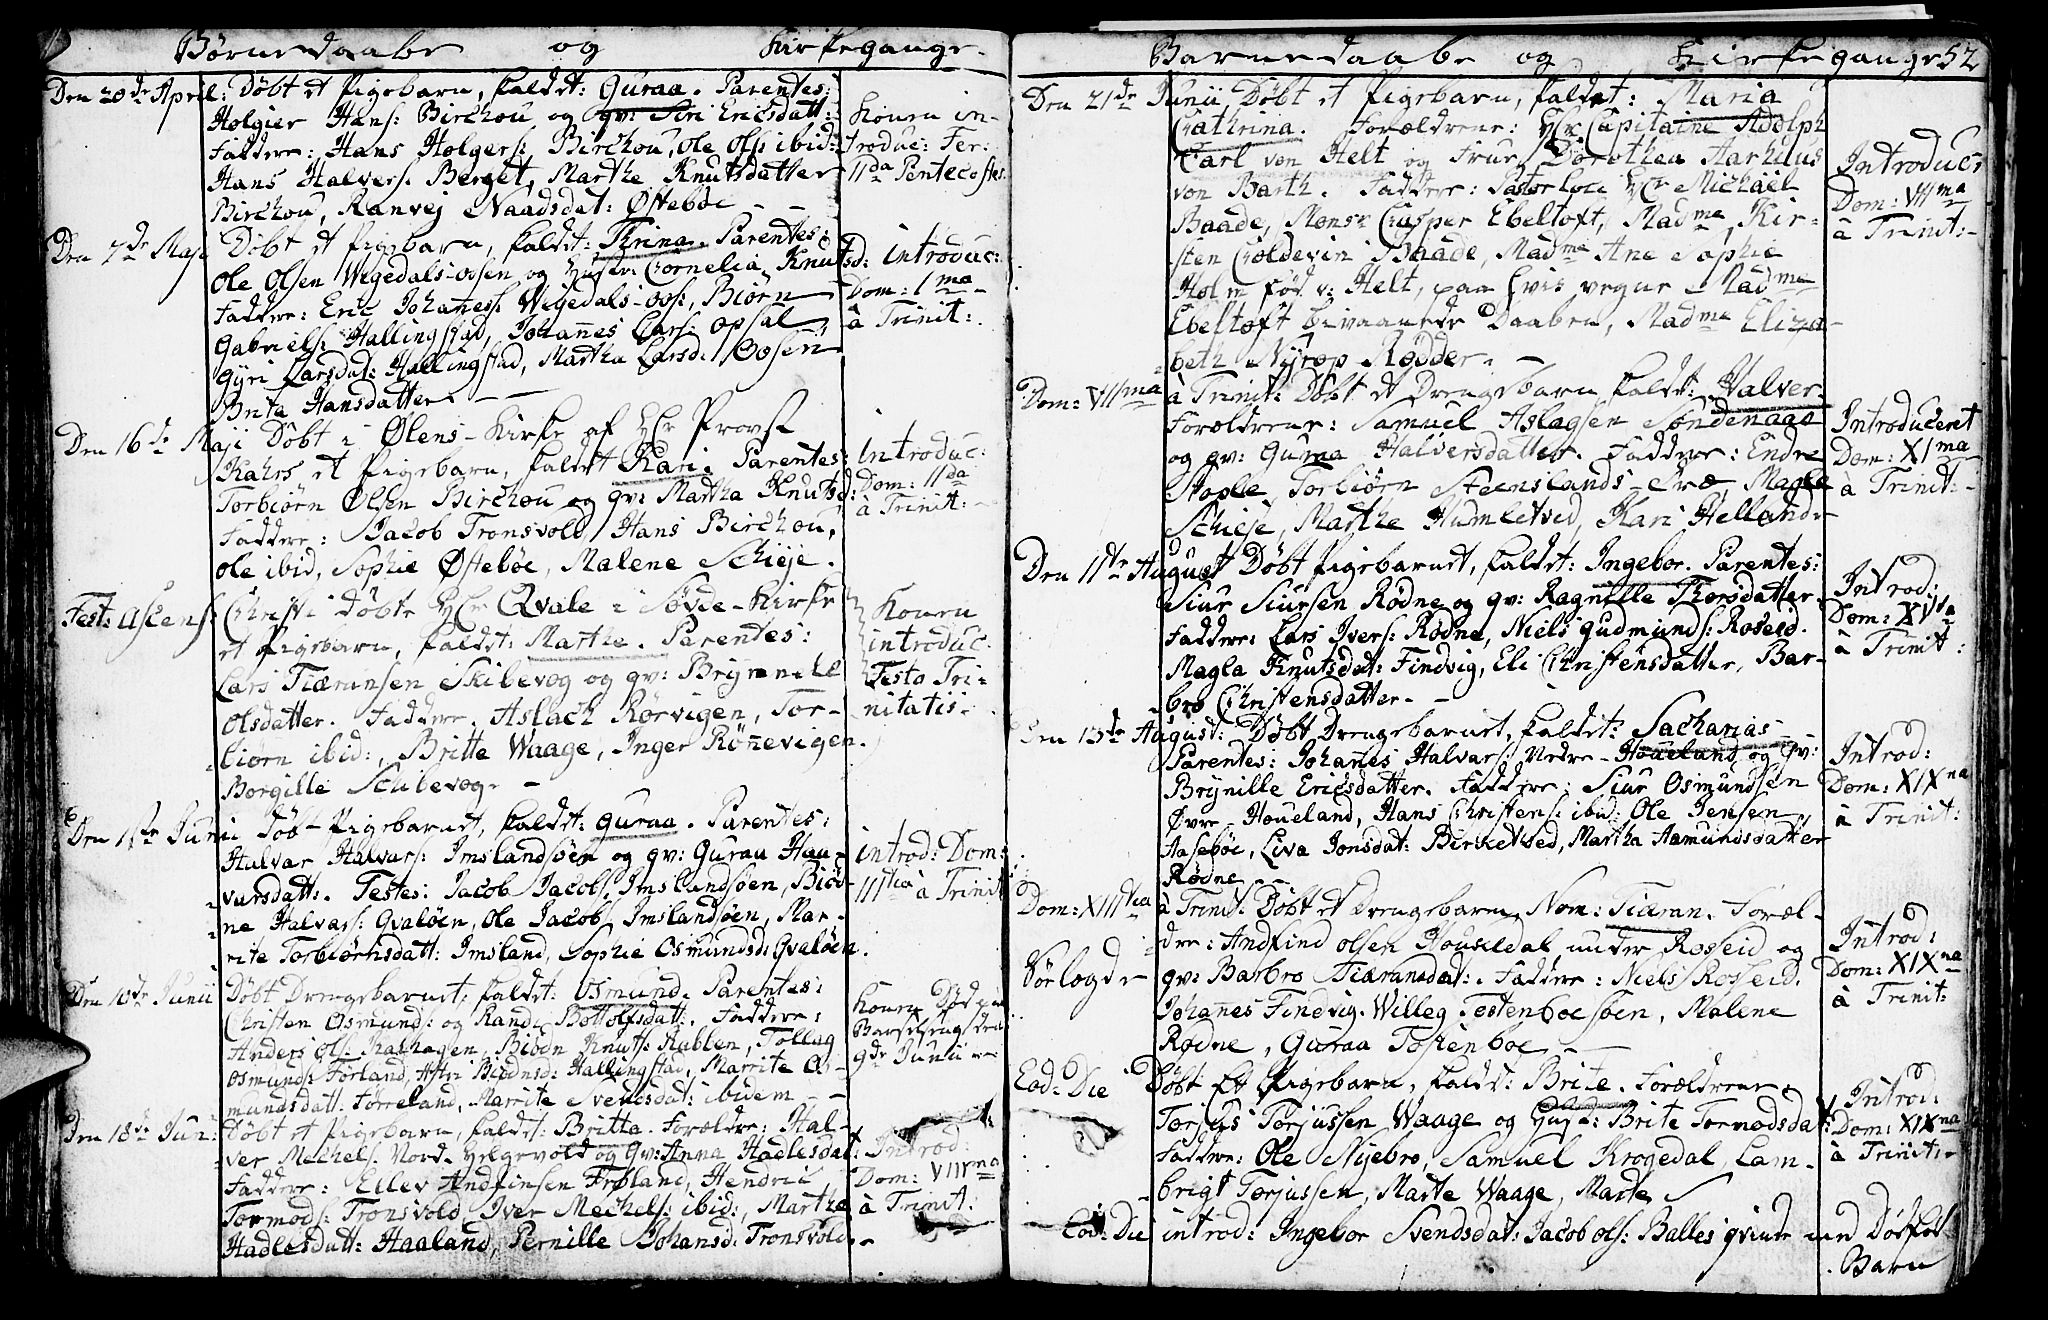 Børnedaabe og Kirkegange.
Den 20de April: Døbt et Pigebarn, kaldet: Guraa. Parentes:
Holgier Hans: Birchou og qv: Siri Ericsdatt:
Faddere: Hans Holgers: Birchou, Ole Ols: ibid:
Hans Halvers: Berget, Marthe Knutsdatter
Birchou, Ranvej Naadsdat: Østebøe
Konen in-
troduc: Fer:
IIda Pentecostes.
Den 7de Maji Døbt et Pigebarn, kaldet: Thrina. Parentes:
Ole Olsen Wigedals-oosen og Hustr: Cornelia Knutsd:
Faddere: Eric Johañess: Wigedals-oos:, Biørn
Gabriels: Hallingstad, Johañes Lars: Opsal
Gyri Larsdat: Hallingstad, Martha Larsd: Oosen
Brita Hansdatter.
introduc:
Dom: 1ma
à Trinit:
Den 16de Maji Døbt i Ølens-Kirke af Hr Provst
Kahrs et Pigebarn, kaldet Kari. Parentes:
Torbiørn Olsen Birchou og qv: Martha Knutsd:
Faddere: Jacob Tronsvold, Hans Birchou,
Ole ibid, Sophie Østebøe, Malene Schieje.
Introduc:
Dom: IIda
à Trinit:
Fest: Ascens: Christi døbte Hr Qvale i Søvde-Kirke
et Pigebarn, kaldet: Marthe. Parentes:
Lars Tiæransen Skibevog og qv: Brynnild
Olsdatter. Faddere. Aslach Rørvigen, Tor-
biørn ibid:, Britte Waage, Inger Røñevigen.
Borgille Schibevog.
Konen
introduc:
Festo Tri-
nitatis.
Den 1ste Junii døb- Pigebarnet, kaldet: Guraa. Parentes:
Halvar Halvars: Imslandsøen og qv: Guraa Haa-
varsdatt:. Testes: Jacob Jacobs: Imslandsøen, Biød-
ne Halvars: Gvaløen, Ole Jacobs: Imslandsøen, Mar-
rite Torbiørnsdatt: Imsland, Sophie Osmundsd: Gvaløen.
introd: Dom:
IIItia à Trinit
Den 10de Junii Døbt Drengebarnet, kaldet: Osmund. Parentes:
Christen Osmunds: og Randi Bottolfsdatt:. Faddere:
Anders Ols: Kalhagen, Biødn Knuts: Aublen, Tollag
Osmunds: Førland, Astri Biødnsd: Hallingstad, Marrite Os-
mundsdatt: Førreland, Marrite Svendsdat: ibidem
Konen Død i
Barselseng den
9de Junii
Den 18de Jun: Døbt et Pigebarn, kaldet: Britta. Forældre: Hal-
ver Mechels: Nord- Helgevold og Qv: Anna Hadlesdat:
Faddere: Ellev Andfinsen Frøland, Hendric
Tormods: Tronsvold Iver Mechels: ibid:, Martha
Hadlesdatt: Haaland, Pernille Johansd: Tronsvold.
Introd:
Dom: VIIma
à Trinit:
Barnedaabe og Kirkegange 52
Den 21de Junii Døbt et Pigebarn, kaldet: Maria
Cathrina. Forældrene: Hr Capitaine Adolph
Carl von Helt og Frue Dorothea Aarhuus
von Barth. Faddere: Pastor Loci Hr Michael
Baade, Monsr Casper Ebeltoft, Madme Kir-
sten Coldevin Baade, Madme Ane Sophie
Holm fød v: Helt, paa hvis vegne Madme
Ebeltoft bivaanede Daaben, Madme Eliza-
beth Nyrop Rødder.
Introduc:
Dom: VIIma
à Trinit:
Dom: VIIma à Trinit: Døbt et Drengebarn kaldet: Halver.
Forældrene: Samuel Aslagsen Søndenaae
og qv: Guroa Halversdatter. Faddere: Endre
Stople, Torbiørn Steenslands-Træ, Magla
Schieje, Marthe Humletved, Kari Helland.
Introduceret
Dom: XIma
à Trinit:
Den 11te August Døbt Pigebarnet, kaldet: Ingebor. Parentes:
Siur Siursen Rødne og qv: Ragnille Thorsdatter.
Faddere: Lars Ivers: Rødne, Niels Gudmunds: Roseid.
Magla Knutsdat: Findvig, Eli Christensdatter, Bar-
bro Christensdatter.
Introd:
Dom: XVta
à Trinit:
Den 13de August: Døbt Drengebarnet, kaldet: Sacharias
Parentes: Johañes Halvars: Nedre-Houeland og Qv:
Brynille Ericsdatter. Faddere: Siur Osmundsen
Øvre-Houeland, Hans Christens: ibid: Ole Jensen
Aasebøe, Liva Jonsdat: Birketved, Martha Aamundsdatter
Rødne
Introd:
Dom: XIXna
à Trinit:
Dom: XIIItia à Trinit: Døbt et Drengebarn, Nom: Tiæran. Foræl-
dre: Andfind Olsen Houseldal under Roseid og
qv: Barbro Tiæransdat:. Faddere: Niels Roseid.
Johañes Findvig. Willeg Testenboesøen, Malene
Rødne, Guraa Tostenboe
Introd:
Dom: XIXna
à Trinit:
Eod: Die Døbt Et Pigebarn, kaldet: Brite. Forældrene
Torjus Torjussen Waage og Hust: Brite Tormodsdat:
Faddere: Ole Nyebro, Samuel Krogedal, Lam-
brigt Torjussen, Marte Waage, Marte
Introd:
Dom: XIXna
à Trinit:
Eod: Die introd: Ingebor Svendsdat: Jacob Ols: Balles qvinde med Dødfød
Barn